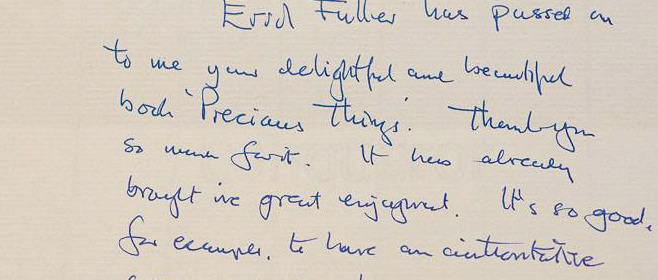 Errol Fuller has passed on
to me your delightful and beautiful
book 'Precious Things'. Thank you
so much for it. It has already
brought me great enjoyment. It's so good,
for example, to have an authoritative